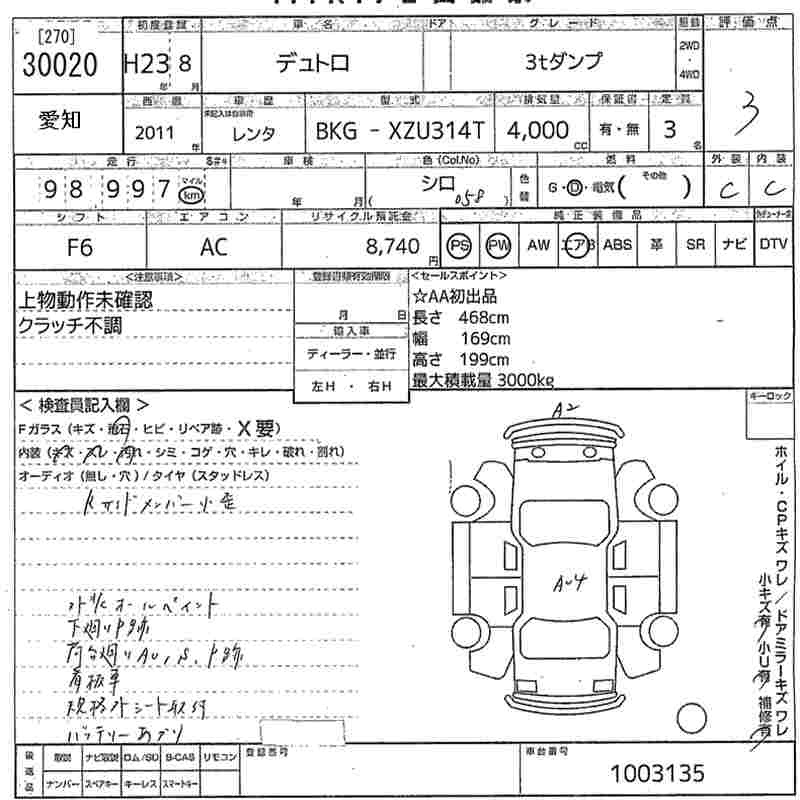 [270]
30020
初度登録
車名
ドア
グレード
駆動
評価点
H23 8
年 月
デュトロ
3tダンプ
2WD
・
4WD
3
愛知
西暦
車歴
型式
排気量
保証書
定員
2011
年
未記入は自家用
レンタ
BKG - XZU314T
4,000
CC
有・無
3
名
走行
車検
色(Col.No)
燃料
外装
内装
98 997
マイル
km
年 月
シロ
( 058 )
色替
G・D・電気( その他 )
C
C
シフト
エアコン
リサイクル預託金
純正装備品
F6
AC
8,740
円
PS PW AW エアB ABS 革 SR ナビ DTV
<注意事項>
登録書類有効期限
<セールスポイント>
上物動作未確認
クラッチ不調
月 日
輸入車
ディーラー・並行
左H ・ 右H
☆AA初出品
長さ 468cm
幅 169cm
高さ 199cm
最大積載量 3000kg
キーロック
< 検査員記入欄 >
Fガラス(キズ・飛石・ヒビ・リペア跡・X要)
内装(キズ・スレ・汚れ・シミ・コゲ・穴・キレ・破れ・割れ)
オーディオ(無し・穴)/タイヤ(スタッドレス)
サイドメンバー小歪
A2
AU4
外装オールペイント
下廻りP跡
荷台廻りAU,S,P跡
看板車
規格外シート取付
バッテリーあがり
ホイル・CPキズワレ/ドアミラーキズワレ
小キズ有/小U有/補修有
後返品
取説
ナビ取説
ロム/SD
B-CAS
リモコン
ナンバー
スペアキー
キーレス
スマートキー
登録番号
車台番号
1003135